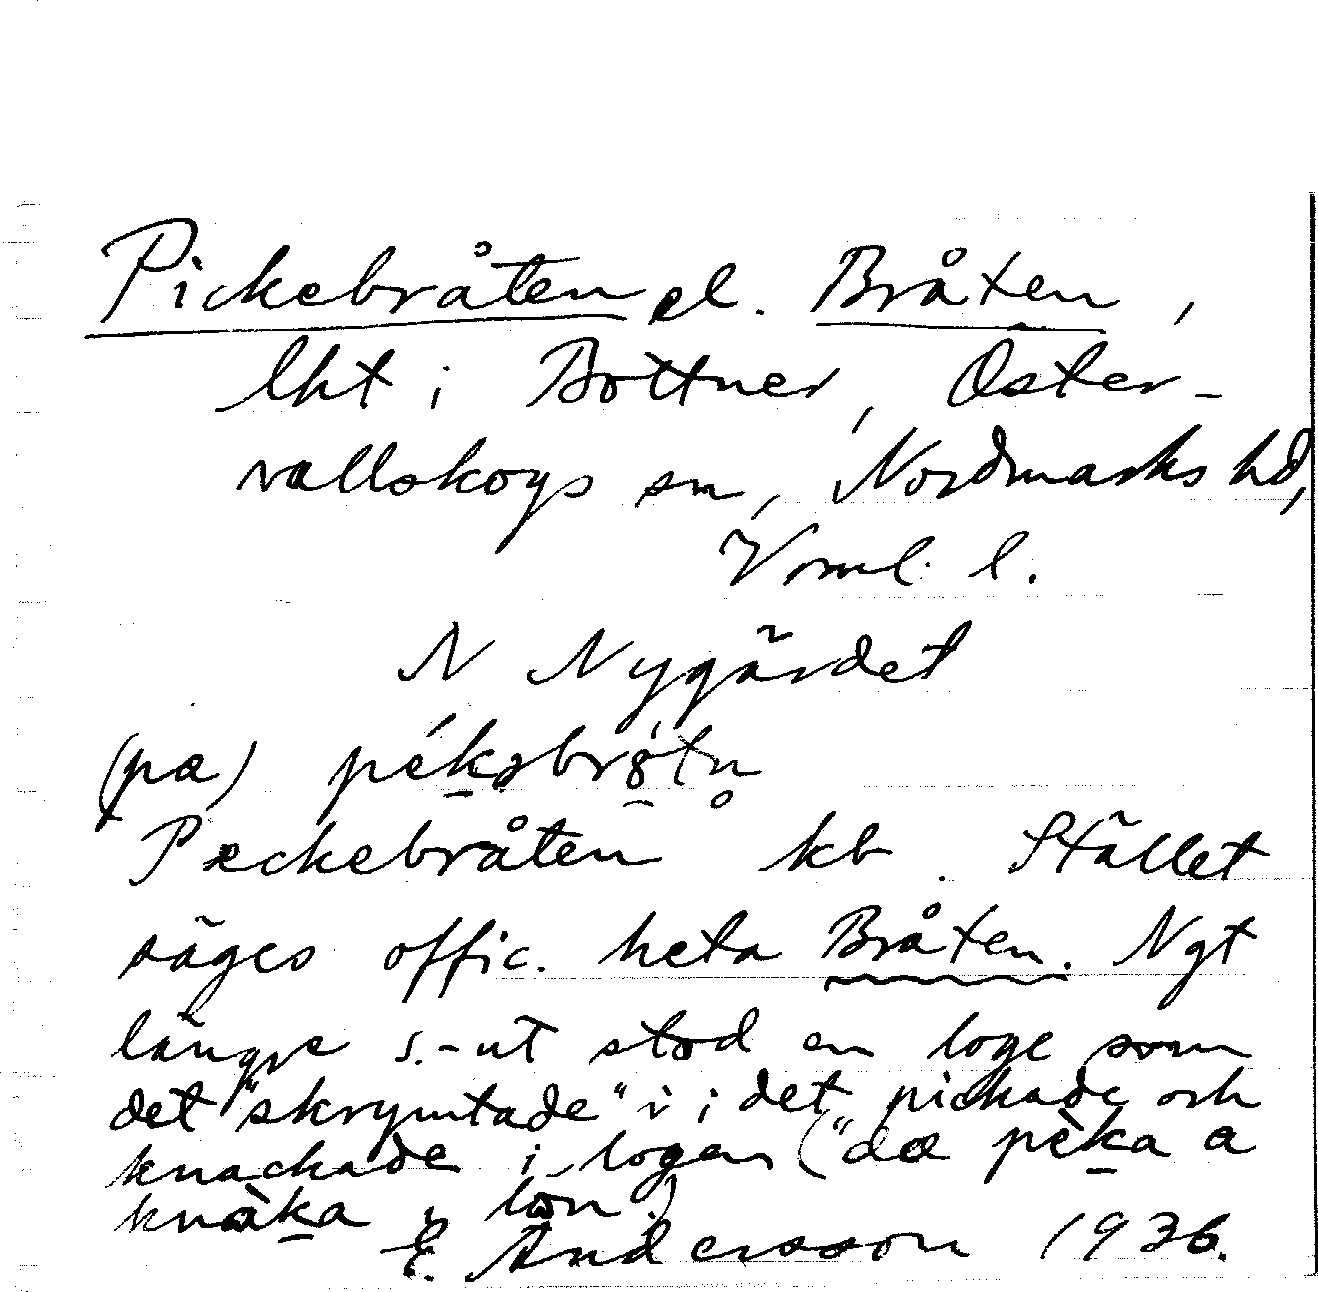 Pickebråten el. Bråten,
lht i Bottner, Öster-
vallskogs sn, Nordmarks hd,
Vrml. l.
N Nygärdet
(pa) pékəbrótn̥
Peckebråten kb. Stället
säges offic. heta Bråten. Ngt
längre s.-ut stod en loge som
det "skrymtade" i; det pickade och
knackade i logen ("dæ pèka a
knàka i lon.)
E. Andersson 1936.